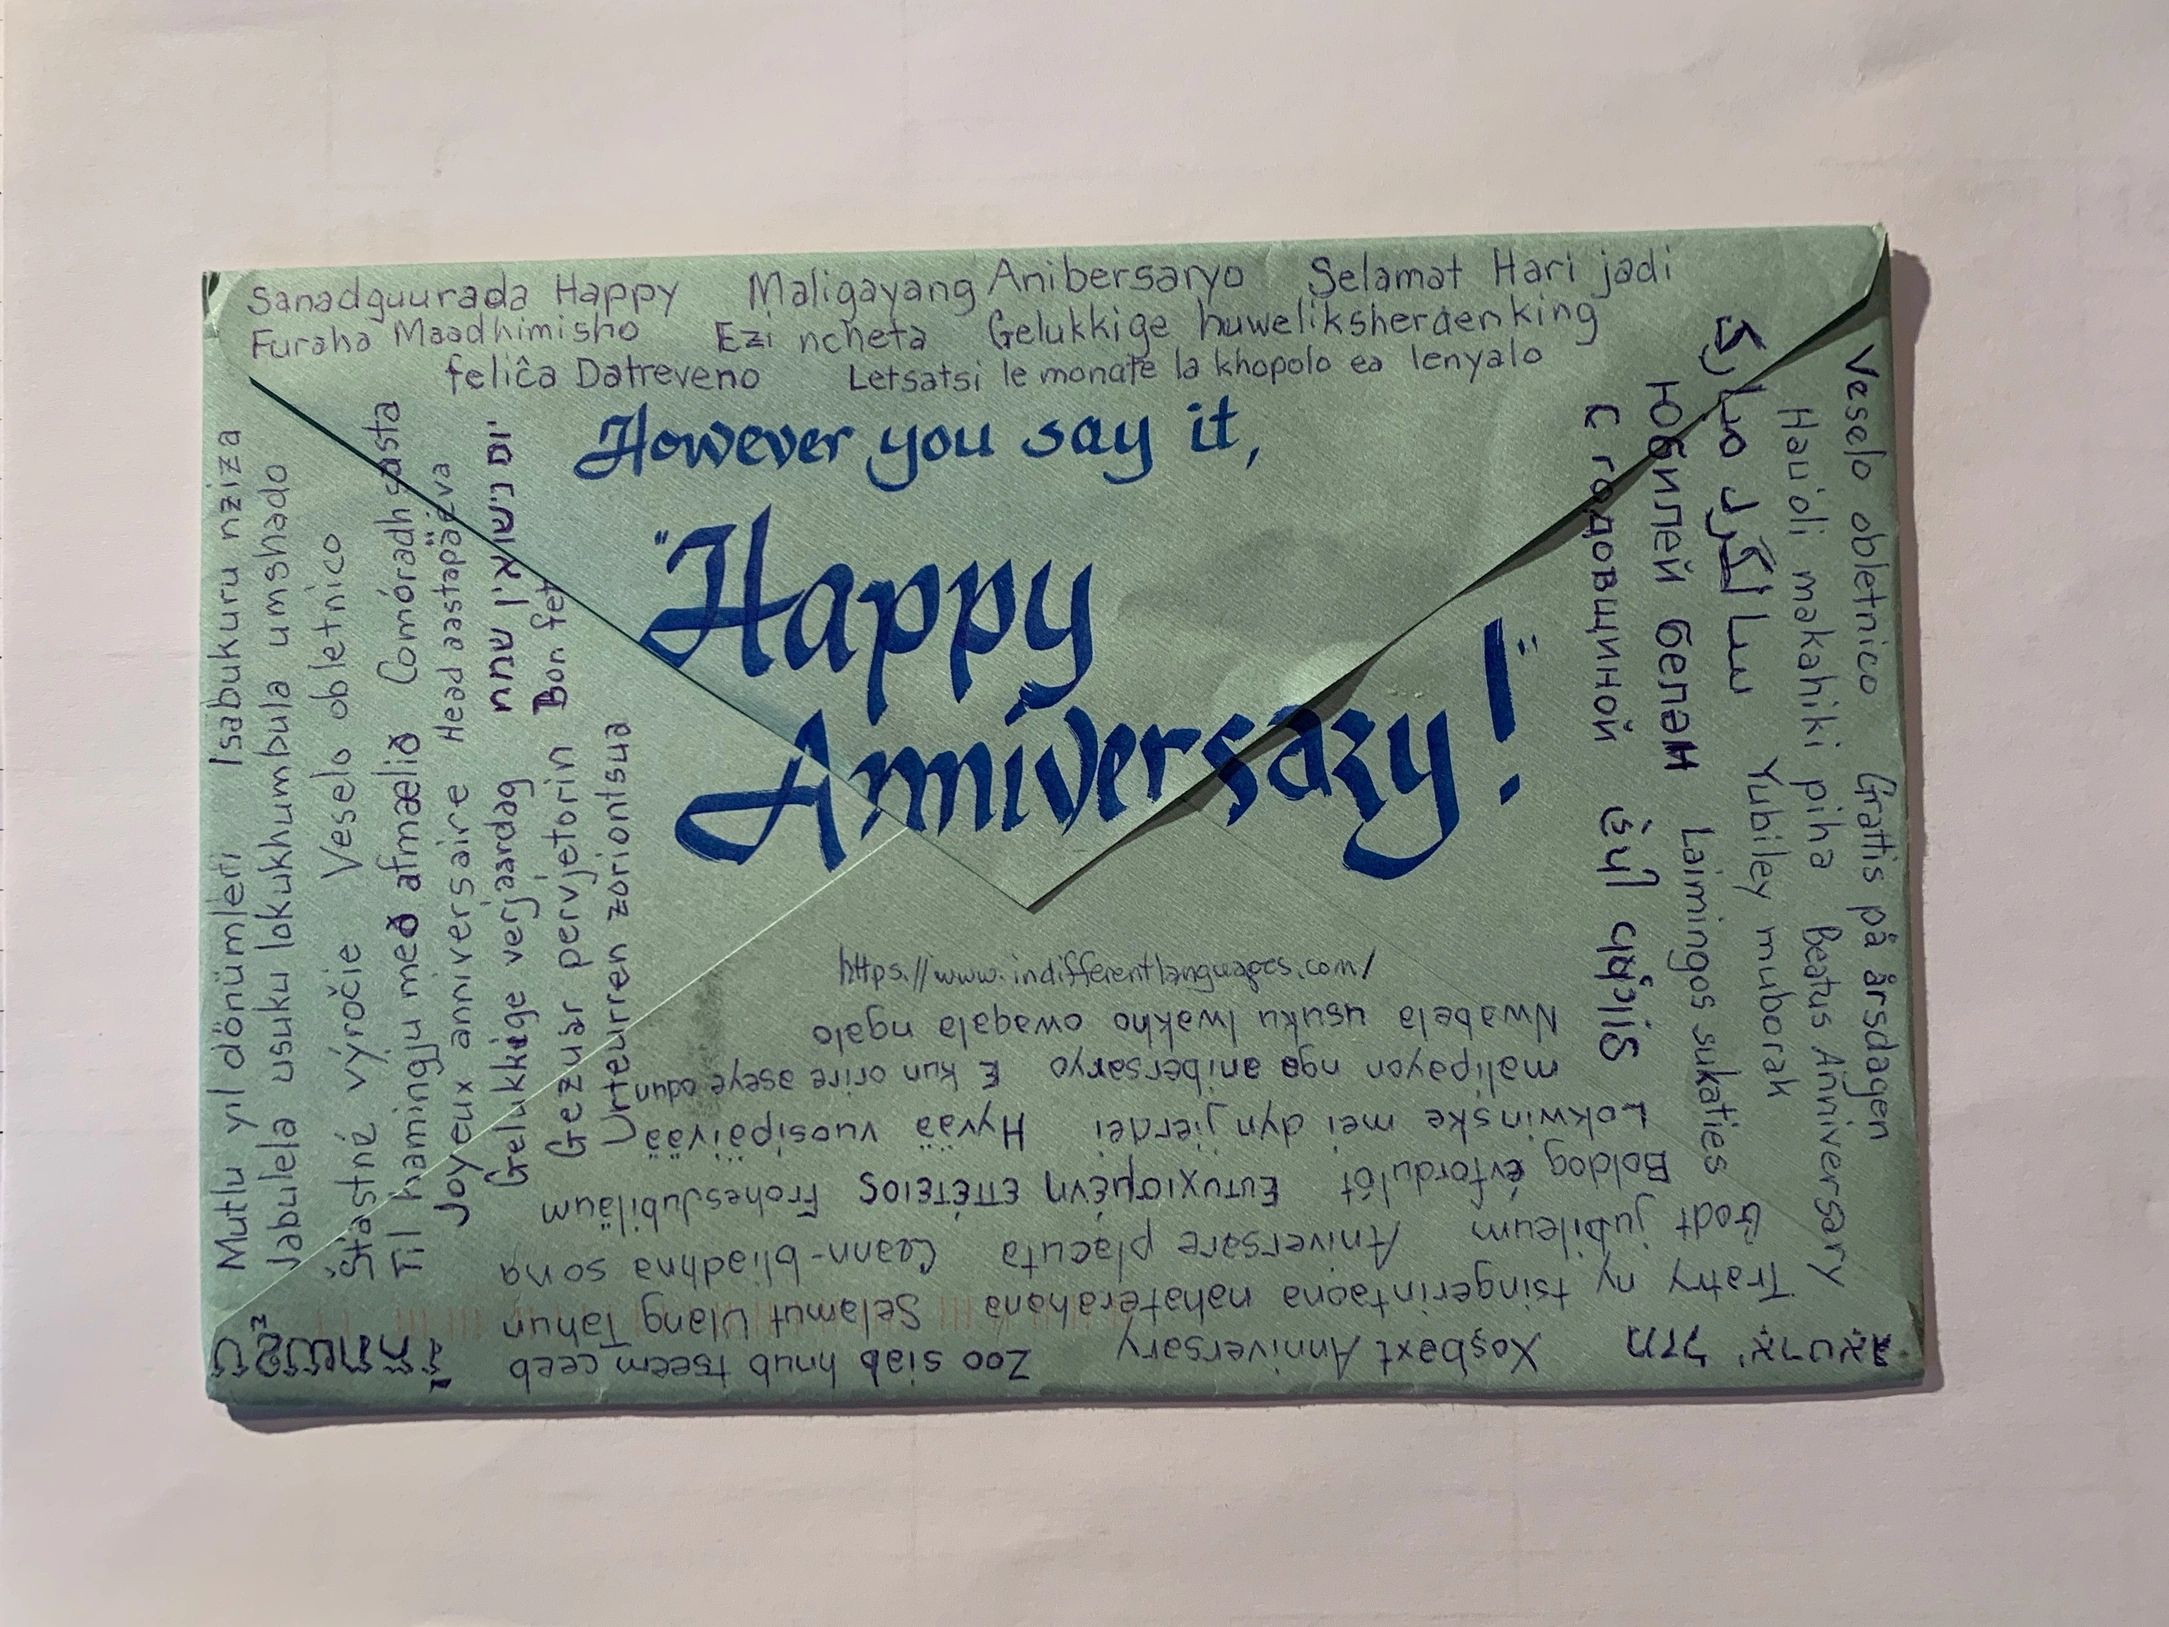 Sanadguurada Happy Maligayang Anibersaryo Selamat Hari jadi
Furaha Maadhimisho Ezi ncheta Gelukkige huweliksherdenking
feliĉa Datreveno Letsatsi le monate la khopolo ea lenyalo
However you say it,
"Happy
Anniversary!"
https://www.indifferentlanguages.com/
Veselo obletnico Grattis på årsdagen
Hau'oli makahiki piha Beatus Anniversary
سالگرد مبارک Yubiley muborak
Юбилей белән Laimingos sukaties
С годовщиной
Nwabela usuku lwakho owaqala ngalo
malipayon nga anibersaryo E kun orire aseye odun
Lokwinske mei dyn jierdei Hyvää vuosipäivää
Boldog évfordulót Eυτυχισμένη επέτειος Frohes Jubiläum
Godt jubileum Aniversare placuta Ceann-bliadhna sona
Tratry ny tsingerintaona nahaterahana Selamut Ulang Tahun
Xoşbəxt Anniversary Zoo siab hnub tseem ceeb
Mutlu yıl dönümleri Isabukuru nziza
Jabulela usuku lokukhumbula umshado
Šťastné výročie Veselo obletnico
Til hamingju með afmælið Comóradh sasta
Joyeux anniversaire Head aastapäeva
Gelukkige verjaardag יום נישואין שמח
Gezuar pervjetorin Bon fet
Urteurren zoriontsua